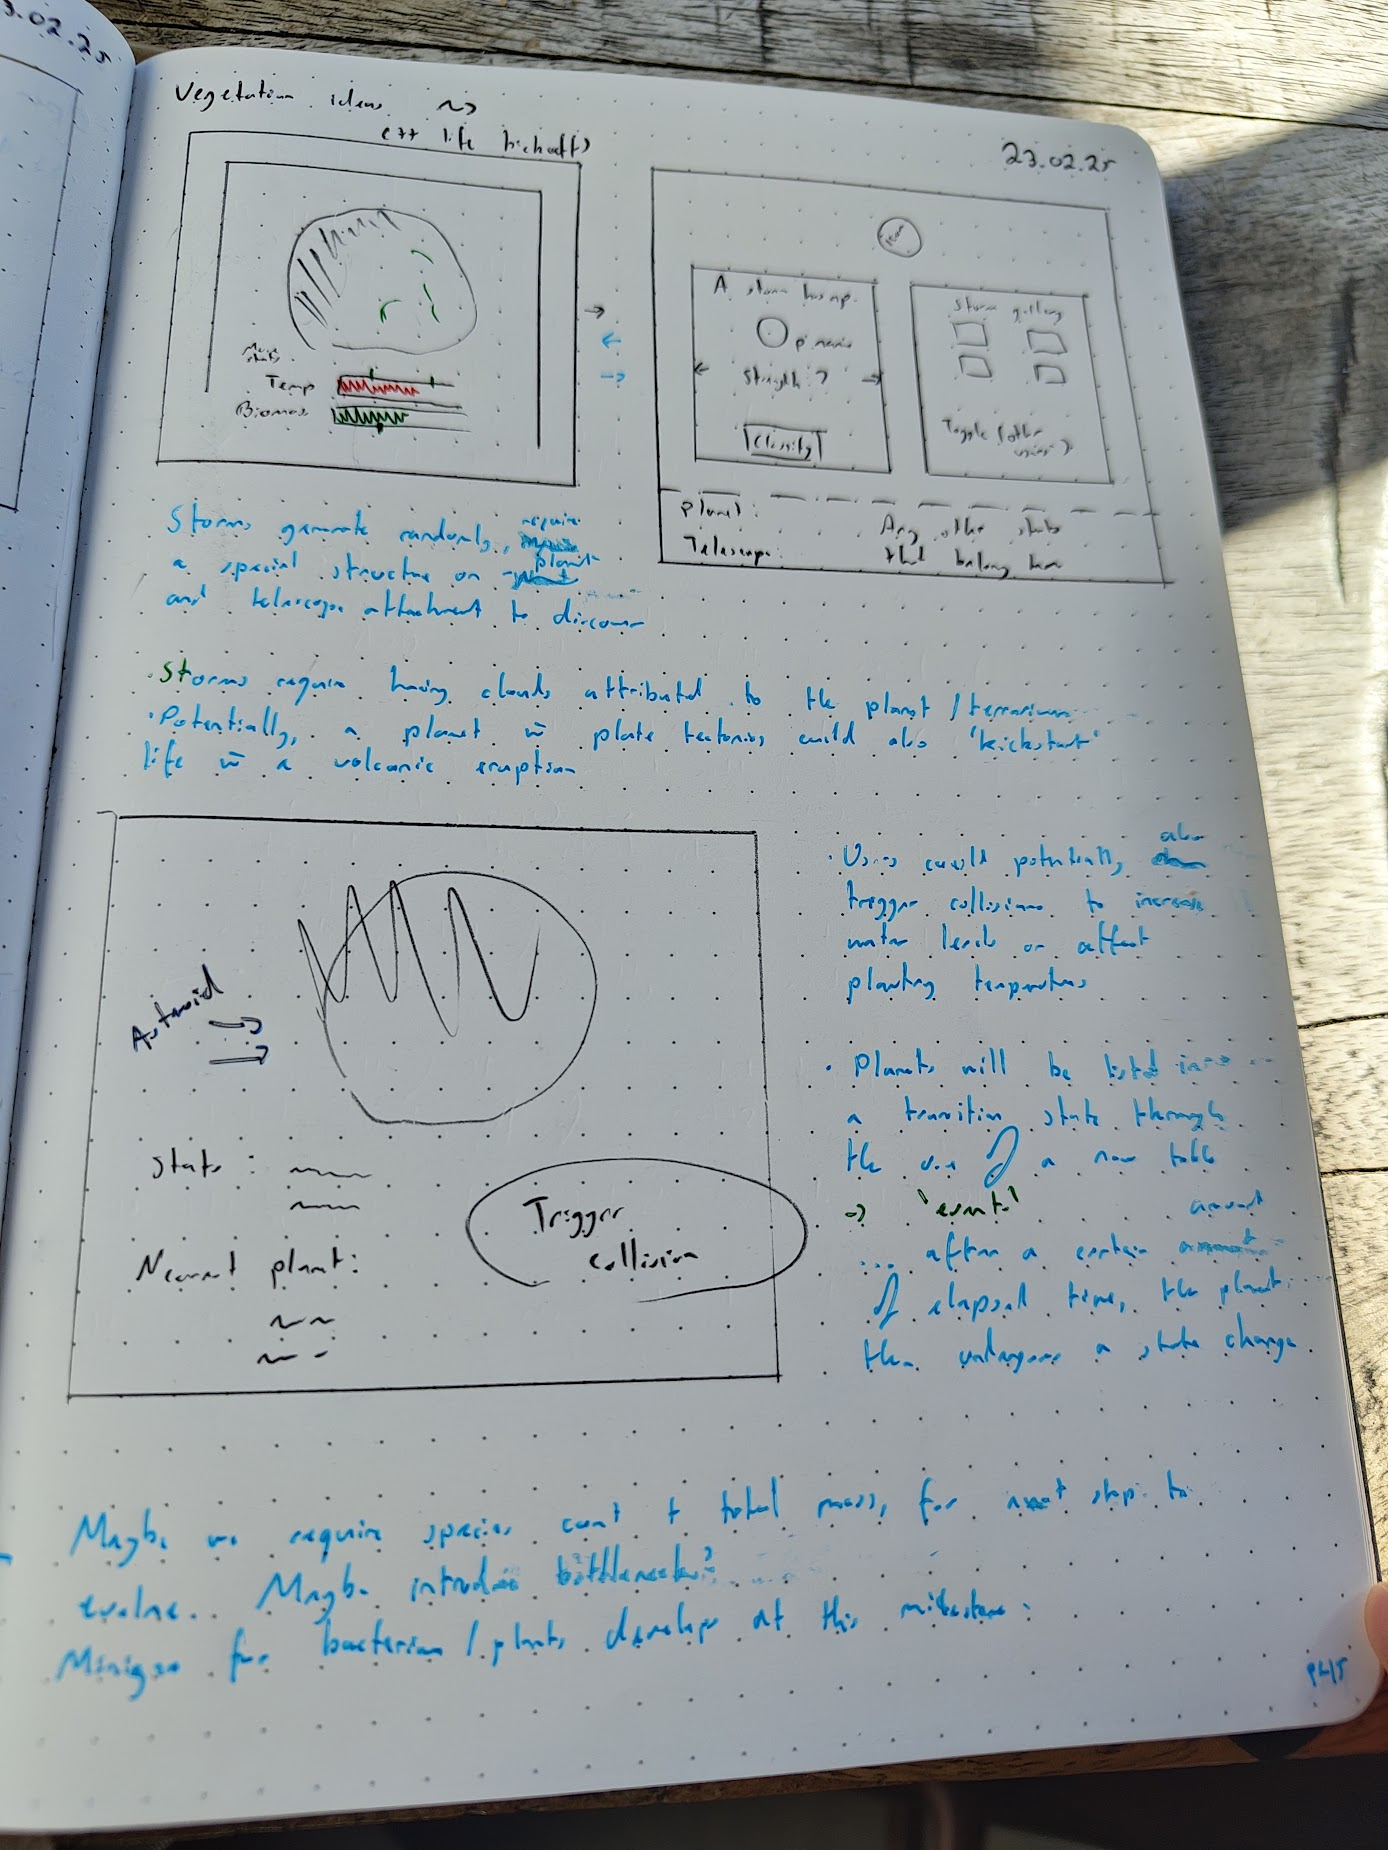 3.02.25
Vegetation ideas ~>
(++ life kickoff)
23.02.25
More
stats
Temp
Biomass
A storm
name
Strength?
Classify
Storm gallery
Toggle (other
Planet:
Telescope:
Any other stats
that belong here
Storms generate randomly, require
a special structure on planet
and telescope attachment to discover
· Storms require having clouds attributed to the planet / terrarium
· Potentially, a planet w̄ plate tectonics could also 'kickstart'
life w̄ a volcanic eruption
Asteroid
Stats:
Nearest planet:
Trigger
collision
· Users could potentially also
trigger collisions to increase
water levels or affect
planetary temperatures
· Planets will be listed in
a transition state through
the use of a new table
-> 'events'
... after a certain amount
of elapsed time, the planet
then undergoes a state change
Maybe we require species count + total mass, for next step to
evolve.. Maybe introduce bottlenecks?
for bacterium / plants develop at this milestone: